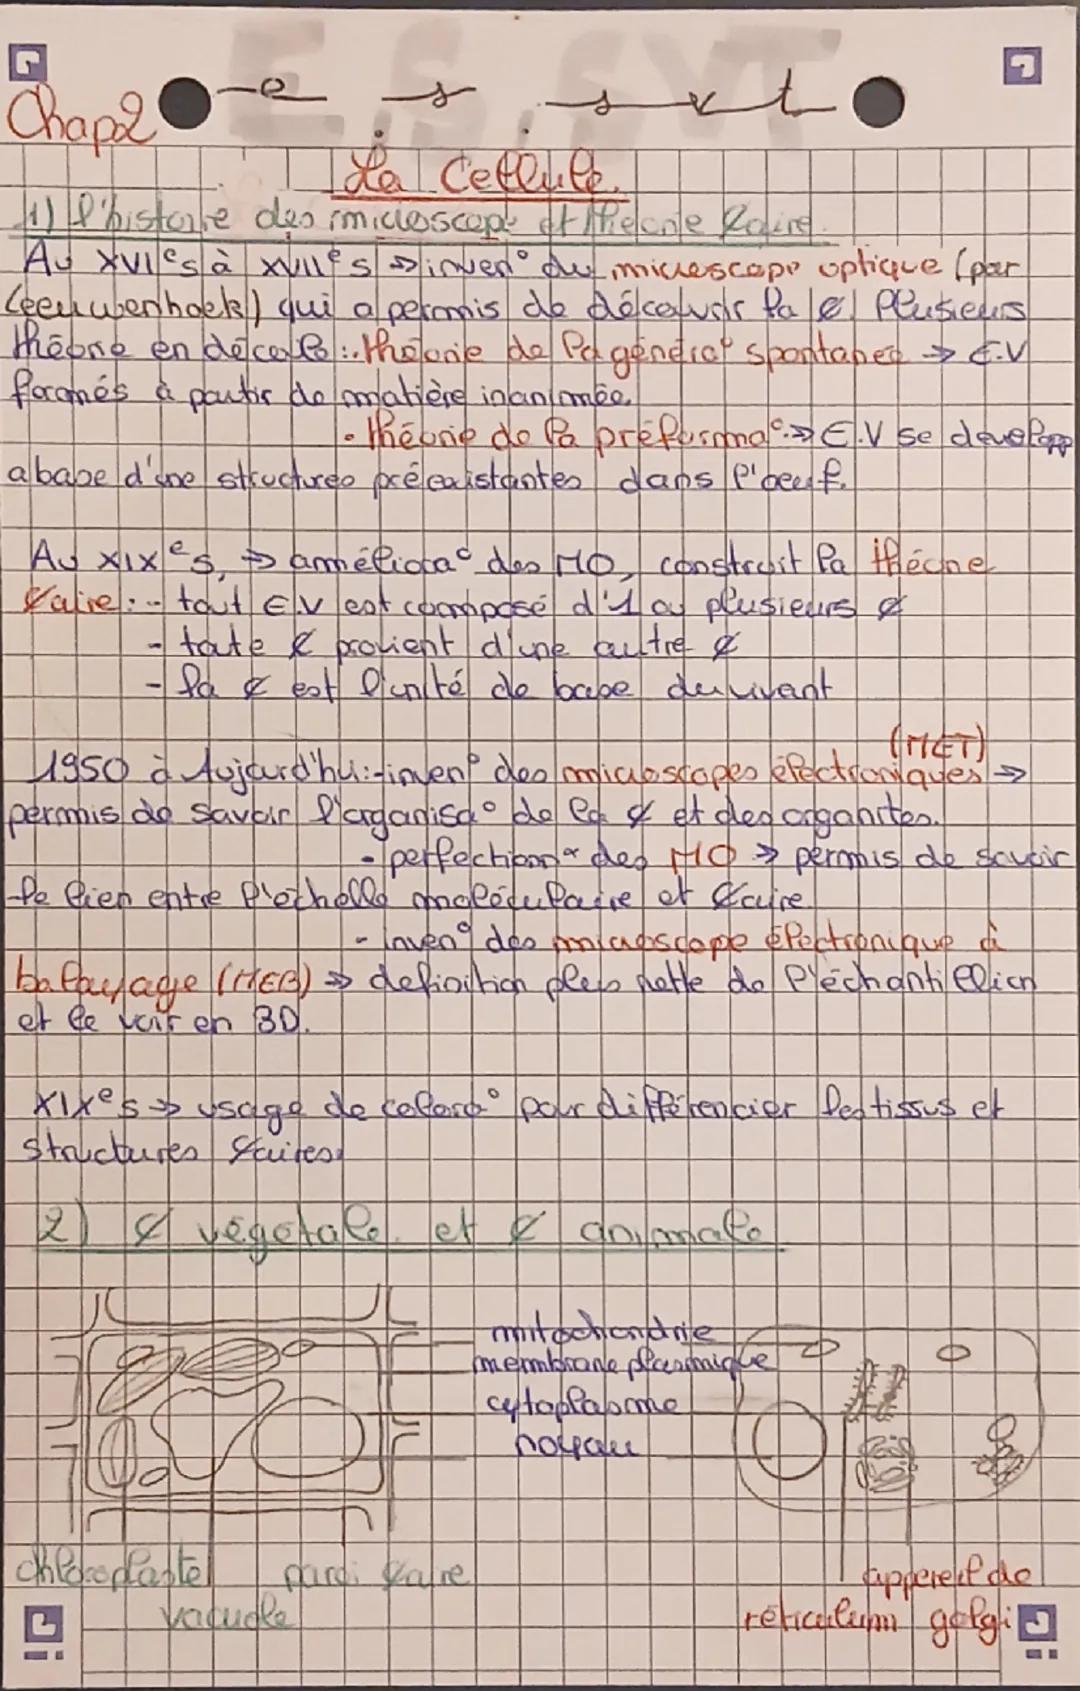 e s svt
Chap2
La Cellule.
1) l'histoire des microscope et théorie ¢aire.
Au XVIe s à XVIIe s ⇒ inven° du microscope optique (par
Leeuwenhoek) qui a permis de découvrir la ¢. Plusieurs
théorie en découle : . théorie de la générat° spontanée → E.V
formés à partir de matière inanimée.
. théorie de la préforma° ⇒ E.V se develop
a base d'une structures préexistantes dans l'oeuf.
Au XIXe s, ⇒ améliora° des MO, construit la théorie
¢aire : - tout E.V est composé d'1 ou plusieurs ¢
- toute ¢ provient d'une autre ¢
- la ¢ est l'unité de base du vivant
(MET)
1950 à Aujourd'hui : - inven° des microscopes électroniques ⇒
permis de savoir l'organisa° de la ¢ et des organites.
- perfection des MO ⇒ permis de savoir
le lien entre l'échelle moléculaire et ¢aire.
- inven° des microscope électronique à
balayage (MEB) ⇒ definition plus nette de l'échantillion
et le voir en 3D.
XIXe s ⇒ usage de colora° pour différencier les tissus et
structures ¢aires.
2) ¢ végétale et ¢ animale
mitochondrie
membrane plasmique
cytoplasme
noyau
chloroplaste paroi ¢aire appereil de
vacuole réticulum golgi